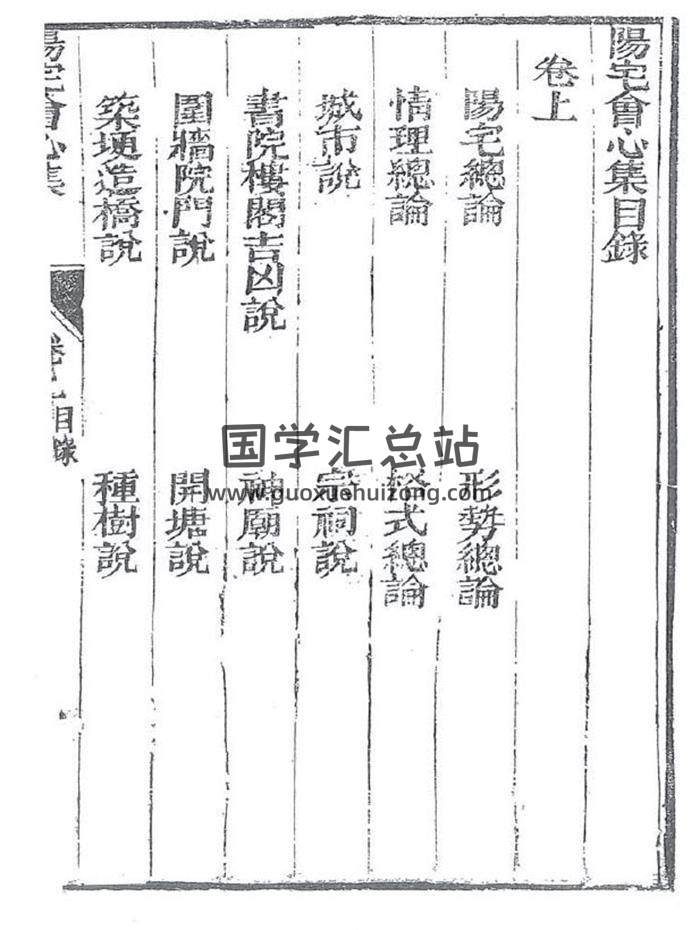 陽宅會心集目錄
卷上
陽宅總論 形勢總論
情理總論 格式總論
城市說 宗祠說
書院樓閣吉凶說 神廟說
圍牆院門說 開塘說
築埂造橋說 種樹說
陽宅會心集 卷上目錄
国学汇总站
www.guoxuehuizong.com